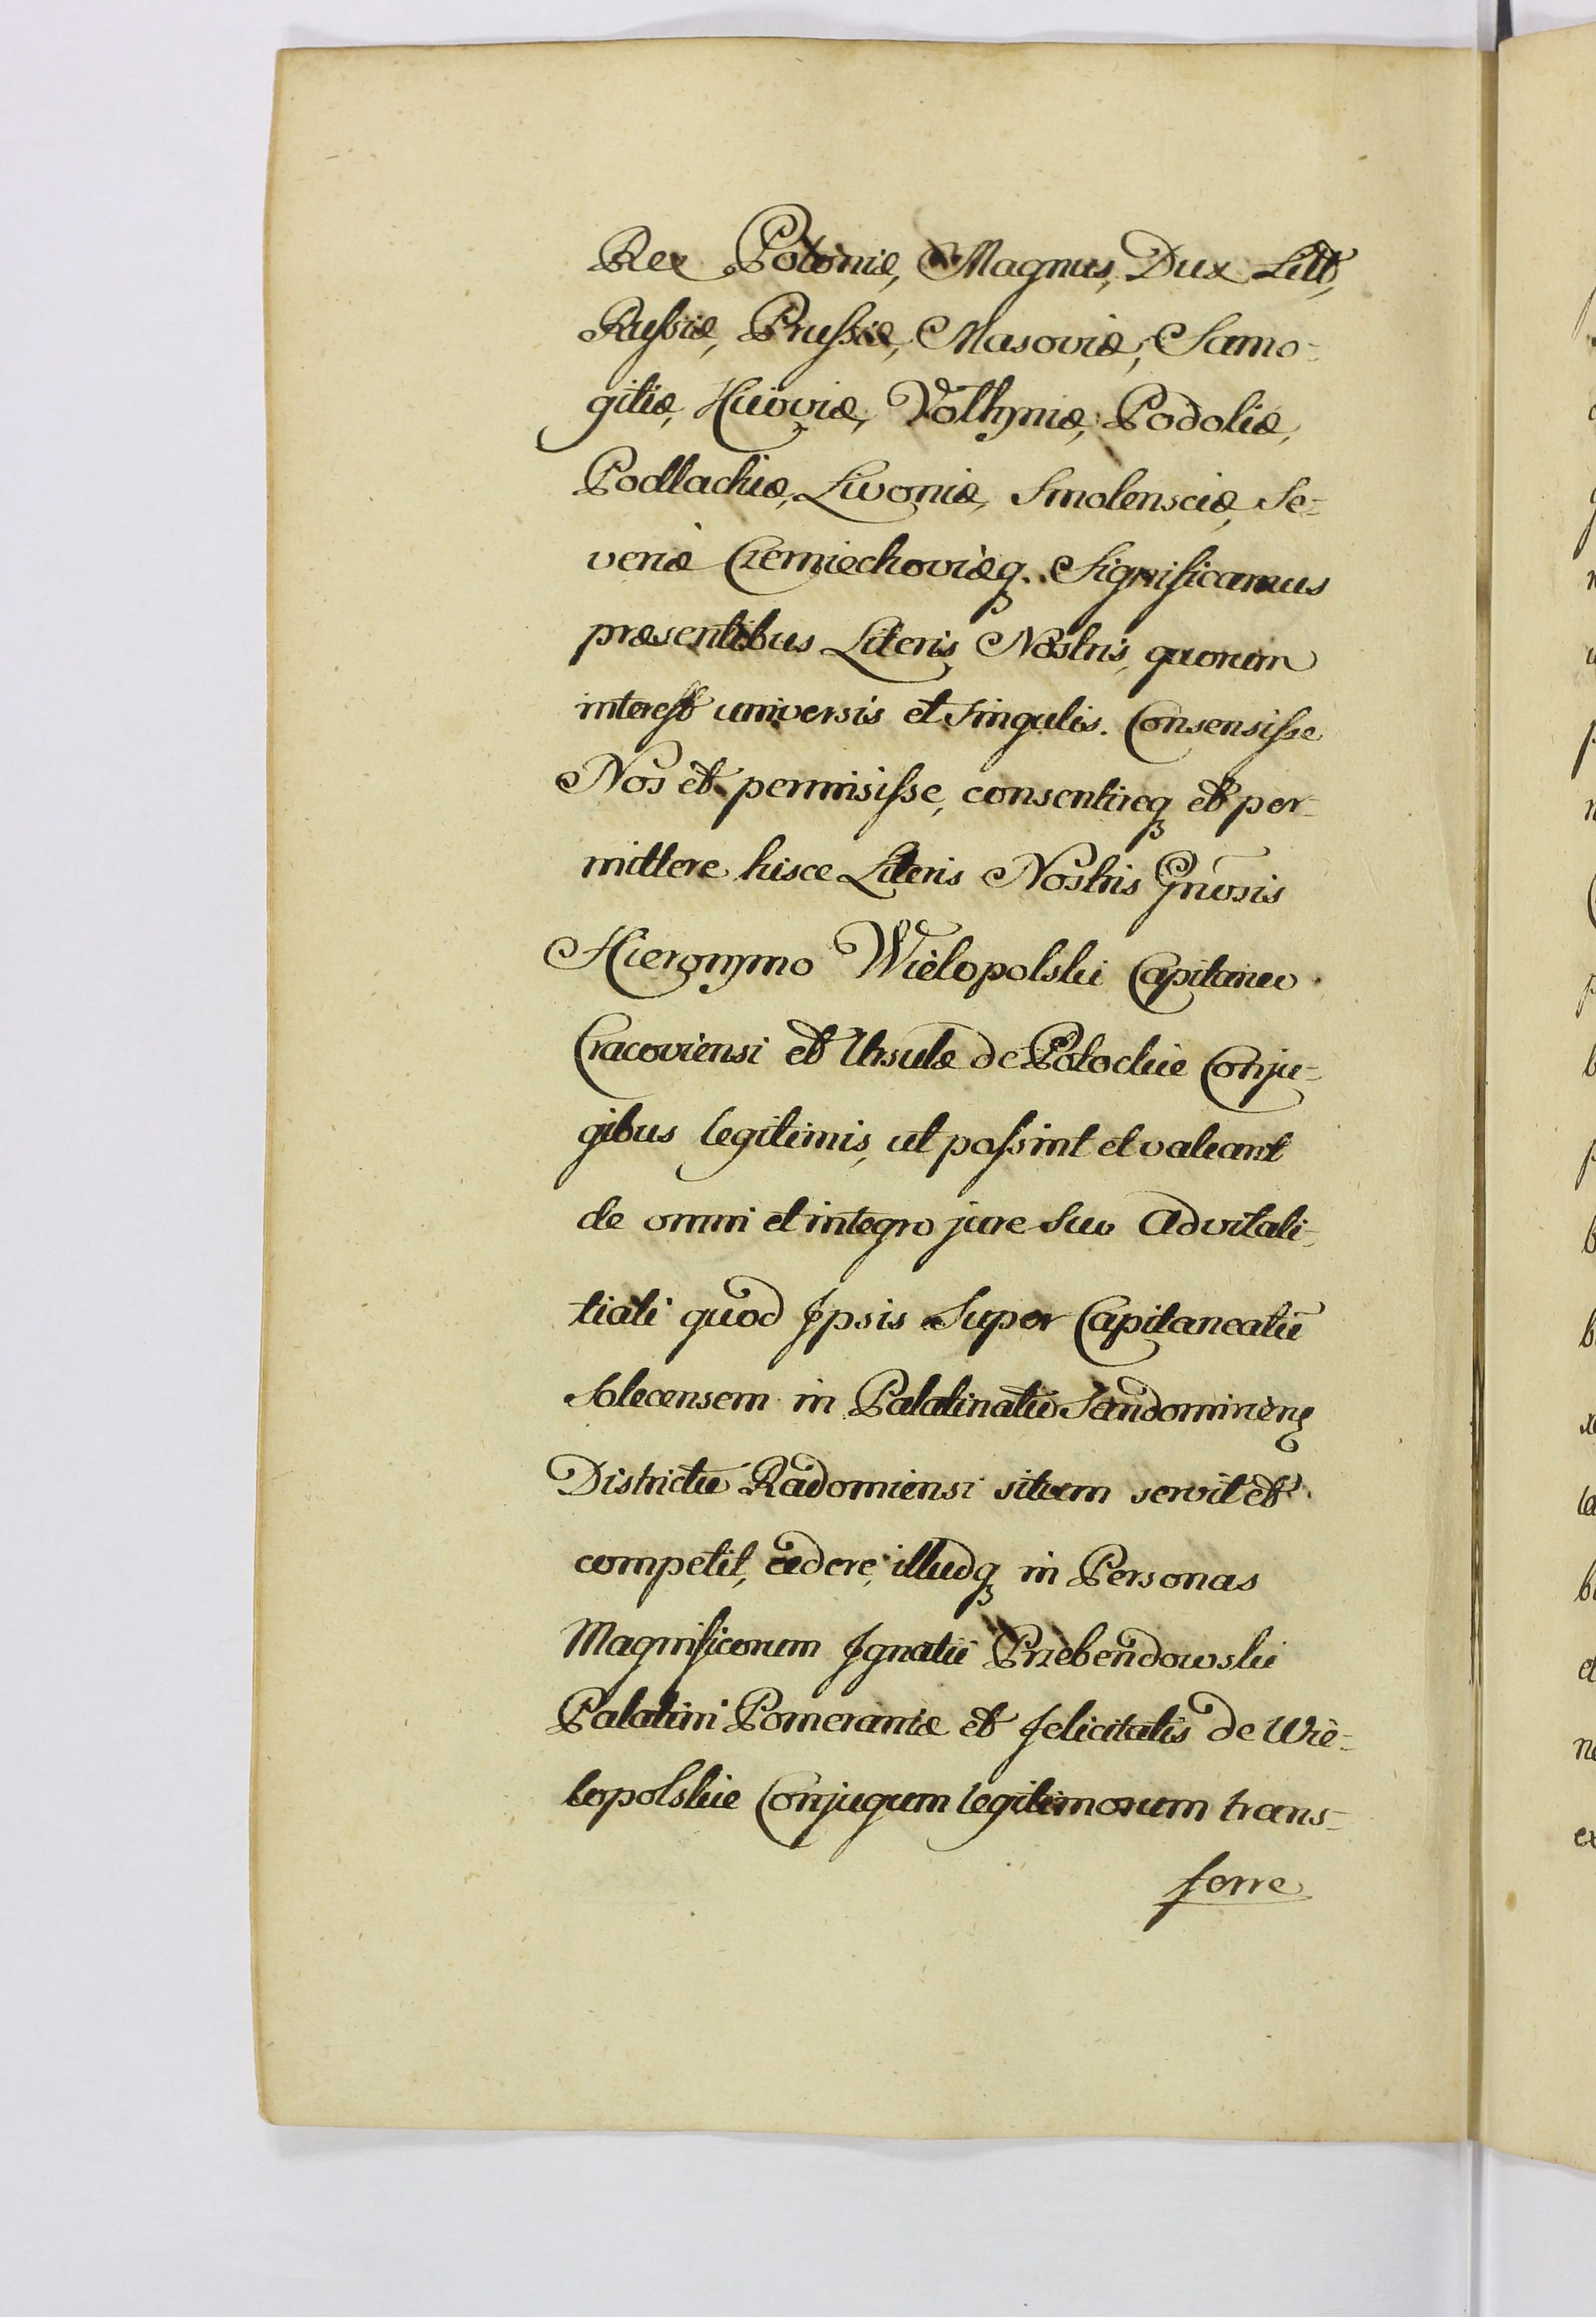 Rex Poloniæ, Magnus, Dux Litt,
Russiæ, Prussiæ, Masoviæ, Samo-
gitiæ, Kiioviæ, Volhyniæ, Podoliæ,
Podlachiæ, Livoniæ, Smolensciæ, Se-
veriæ Czerniechoviæq. Significamus
præsentibus Literis Nostris, quorum
interest universis et singulis. Consensisse
Nos et permisisse, consentireq et per-
mittere hisce Literis Nostris Gnosis
Hieronymo Wielopolski Capitaneo
Cracoviensi et Ursulæ de Potockie Conju-
gibus legitimis, ut possint et valeant
de omni et integro jure suo Advitali-
tiali quod Ipsis super Capitaneatū
Solecensem in Palatinatu Sandomirieng
Districtu Radomiensi situm servit et
competit, cedere, illudq in Personas
Magnificorum Ignatii Przebendowski
Palatini Pomeraniæ et felicitatis de Wie-
lopolskie Conjugum legitimorum trans-
ferre